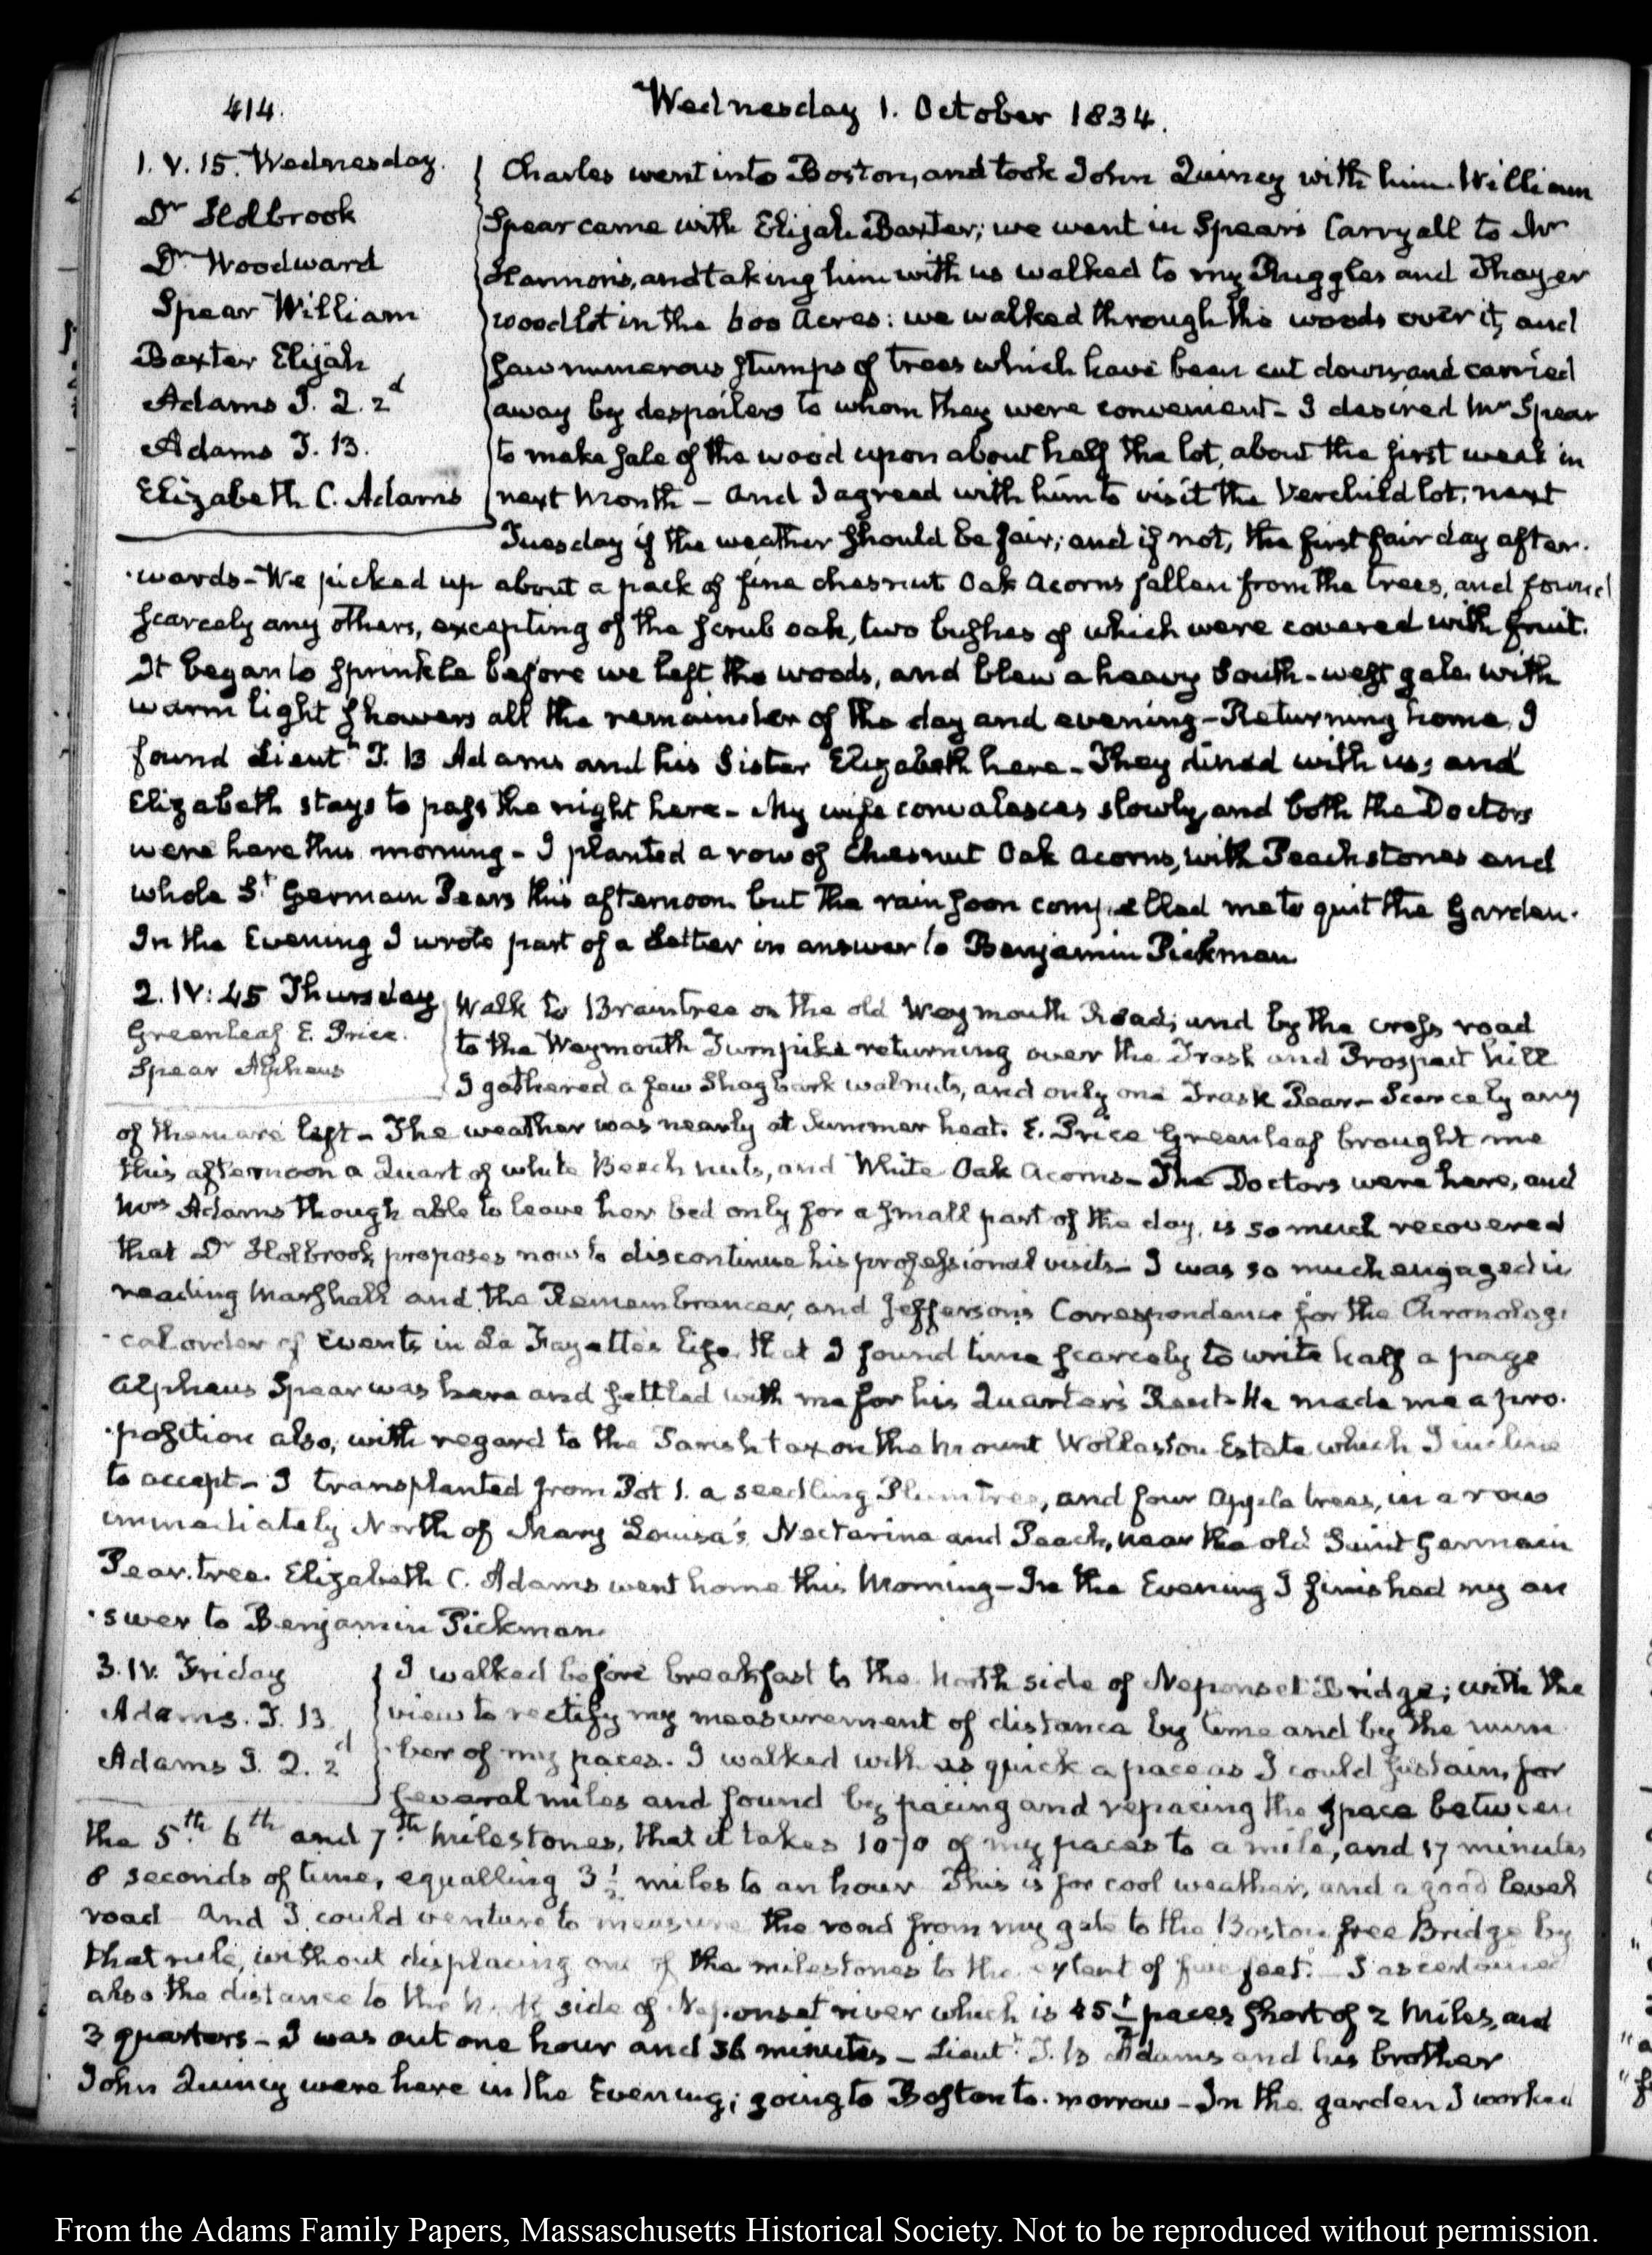 414.
Wednesday 1. October 1834.
1. V. 15. Wednesday.
Dr Holbrook
Dr Woodward
Spear William
Baxter Elijah
Adams J. Q. 2d
Adams T. B.
Elizabeth C. Adams
Charles went into Boston, and took John Quincy with him. William
Spear came with Elijah Baxter; we went in Spear's Carryall to Mr
Harmon's, and taking him with us walked to my Ruggles and Thayer
woodlot in the 600 Acres: we walked through the woods over it, and
saw numerous stumps of trees which have been cut down, and carried
away by despoilers to whom they were convenient - I desired Mr Spear
to make sale of the wood upon about half the lot, about the first week in
next Month - And I agreed with him to visit the Verchild lot, next
Tuesday if the weather should be fair; and if not, the first fair day after-
-wards - We picked up about a peck of fine chesnut Oak Acorns fallen from the trees, and found
scarcely any others, excepting of the scrub oak, two bushes of which were covered with fruit.
It began to sprinkle before we left the woods, and blew a heavy South-west gale with
warm light showers all the remainder of the day and evening - Returning home, I
found Lieutt T. B Adams and his Sister Elizabeth here - They dined with us; and
Elizabeth stays to pass the night here - My wife convalesces slowly, and both the Doctors
were here this morning - I planted a row of Chesnut Oak Acorns, with Peachstones and
whole St Germain Pears this afternoon but the rain soon compelled me to quit the Garden.
In the Evening I wrote part of a Letter in answer to Benjamin Pickman
2. IV: 45 Thursday
Greenleaf E. Price.
Spear Alpheus
Walk to Braintree on the old Weymouth Road; and by the cross road
to the Weymouth Turnpike returning over the Trask and Prospect hill
I gathered a few Shagbark walnuts, and only one Trask Pear - Scarcely any
of them are left - The weather was nearly at Summer heat. E. Price Greenleaf brought me
this afternoon a Quart of white Beech nuts, and White Oak Acorns - The Doctors were here, and
Mrs Adams though able to leave her bed only for a small part of the day, is so much recovered
that Dr Holbrook proposes now to discontinue his professional visits - I was so much engaged in
reading Marshall and the Remembrancer, and Jefferson's Correspondence for the Chronologi-
-cal order of Events in La Fayette's life, that I found time scarcely to write half a page
Alpheus Spear was here and settled with me for his Quarter's Rent - He made me a pro-
-position also, with regard to the Parish tax on the Mount Wollaston Estate which I incline
to accept - I transplanted from Pot 1. a seedling Plum tree, and four Apple trees, in a row
immediately North of Mary Louisa's Nectarine and Peach, near the old Saint Germain
Pear. tree. Elizabeth C. Adams went home this Morning - In the Evening I finished my an
-swer to Benjamin Pickman.
3. IV. Friday
Adams. T. B.
Adams J. Q. 2d
I walked before breakfast to the North side of Neponset Bridge; with the
view to rectify my measurement of distance by time and by the num-
-ber of my paces. I walked with as quick a pace as I could sustain, for
several miles and found by pacing and repacing the space between
the 5th. 6th and 7th. Milestones, that it takes 1070 of my paces to a mile, and 17 minutes
8 seconds of time, equalling 3 1/2 miles to an hour This is for cool weather, and a good level
road And I could venture to measure the road from my gate to the Boston free Bridge by
that rule, without displacing one of the milestones to the extent of five feet. - I ascertained
also the distance to the North side of Neponset river which is 45 1/2 paces short of 2 Miles, and
3 quarters - I was out one hour and 36 minutes - Lieutt T. B Adams and his brother
John Quincy were here in the Evening; going to Boston to-morrow - In the garden I worked
From the Adams Family Papers, Massaschusetts Historical Society. Not to be reproduced without permission.